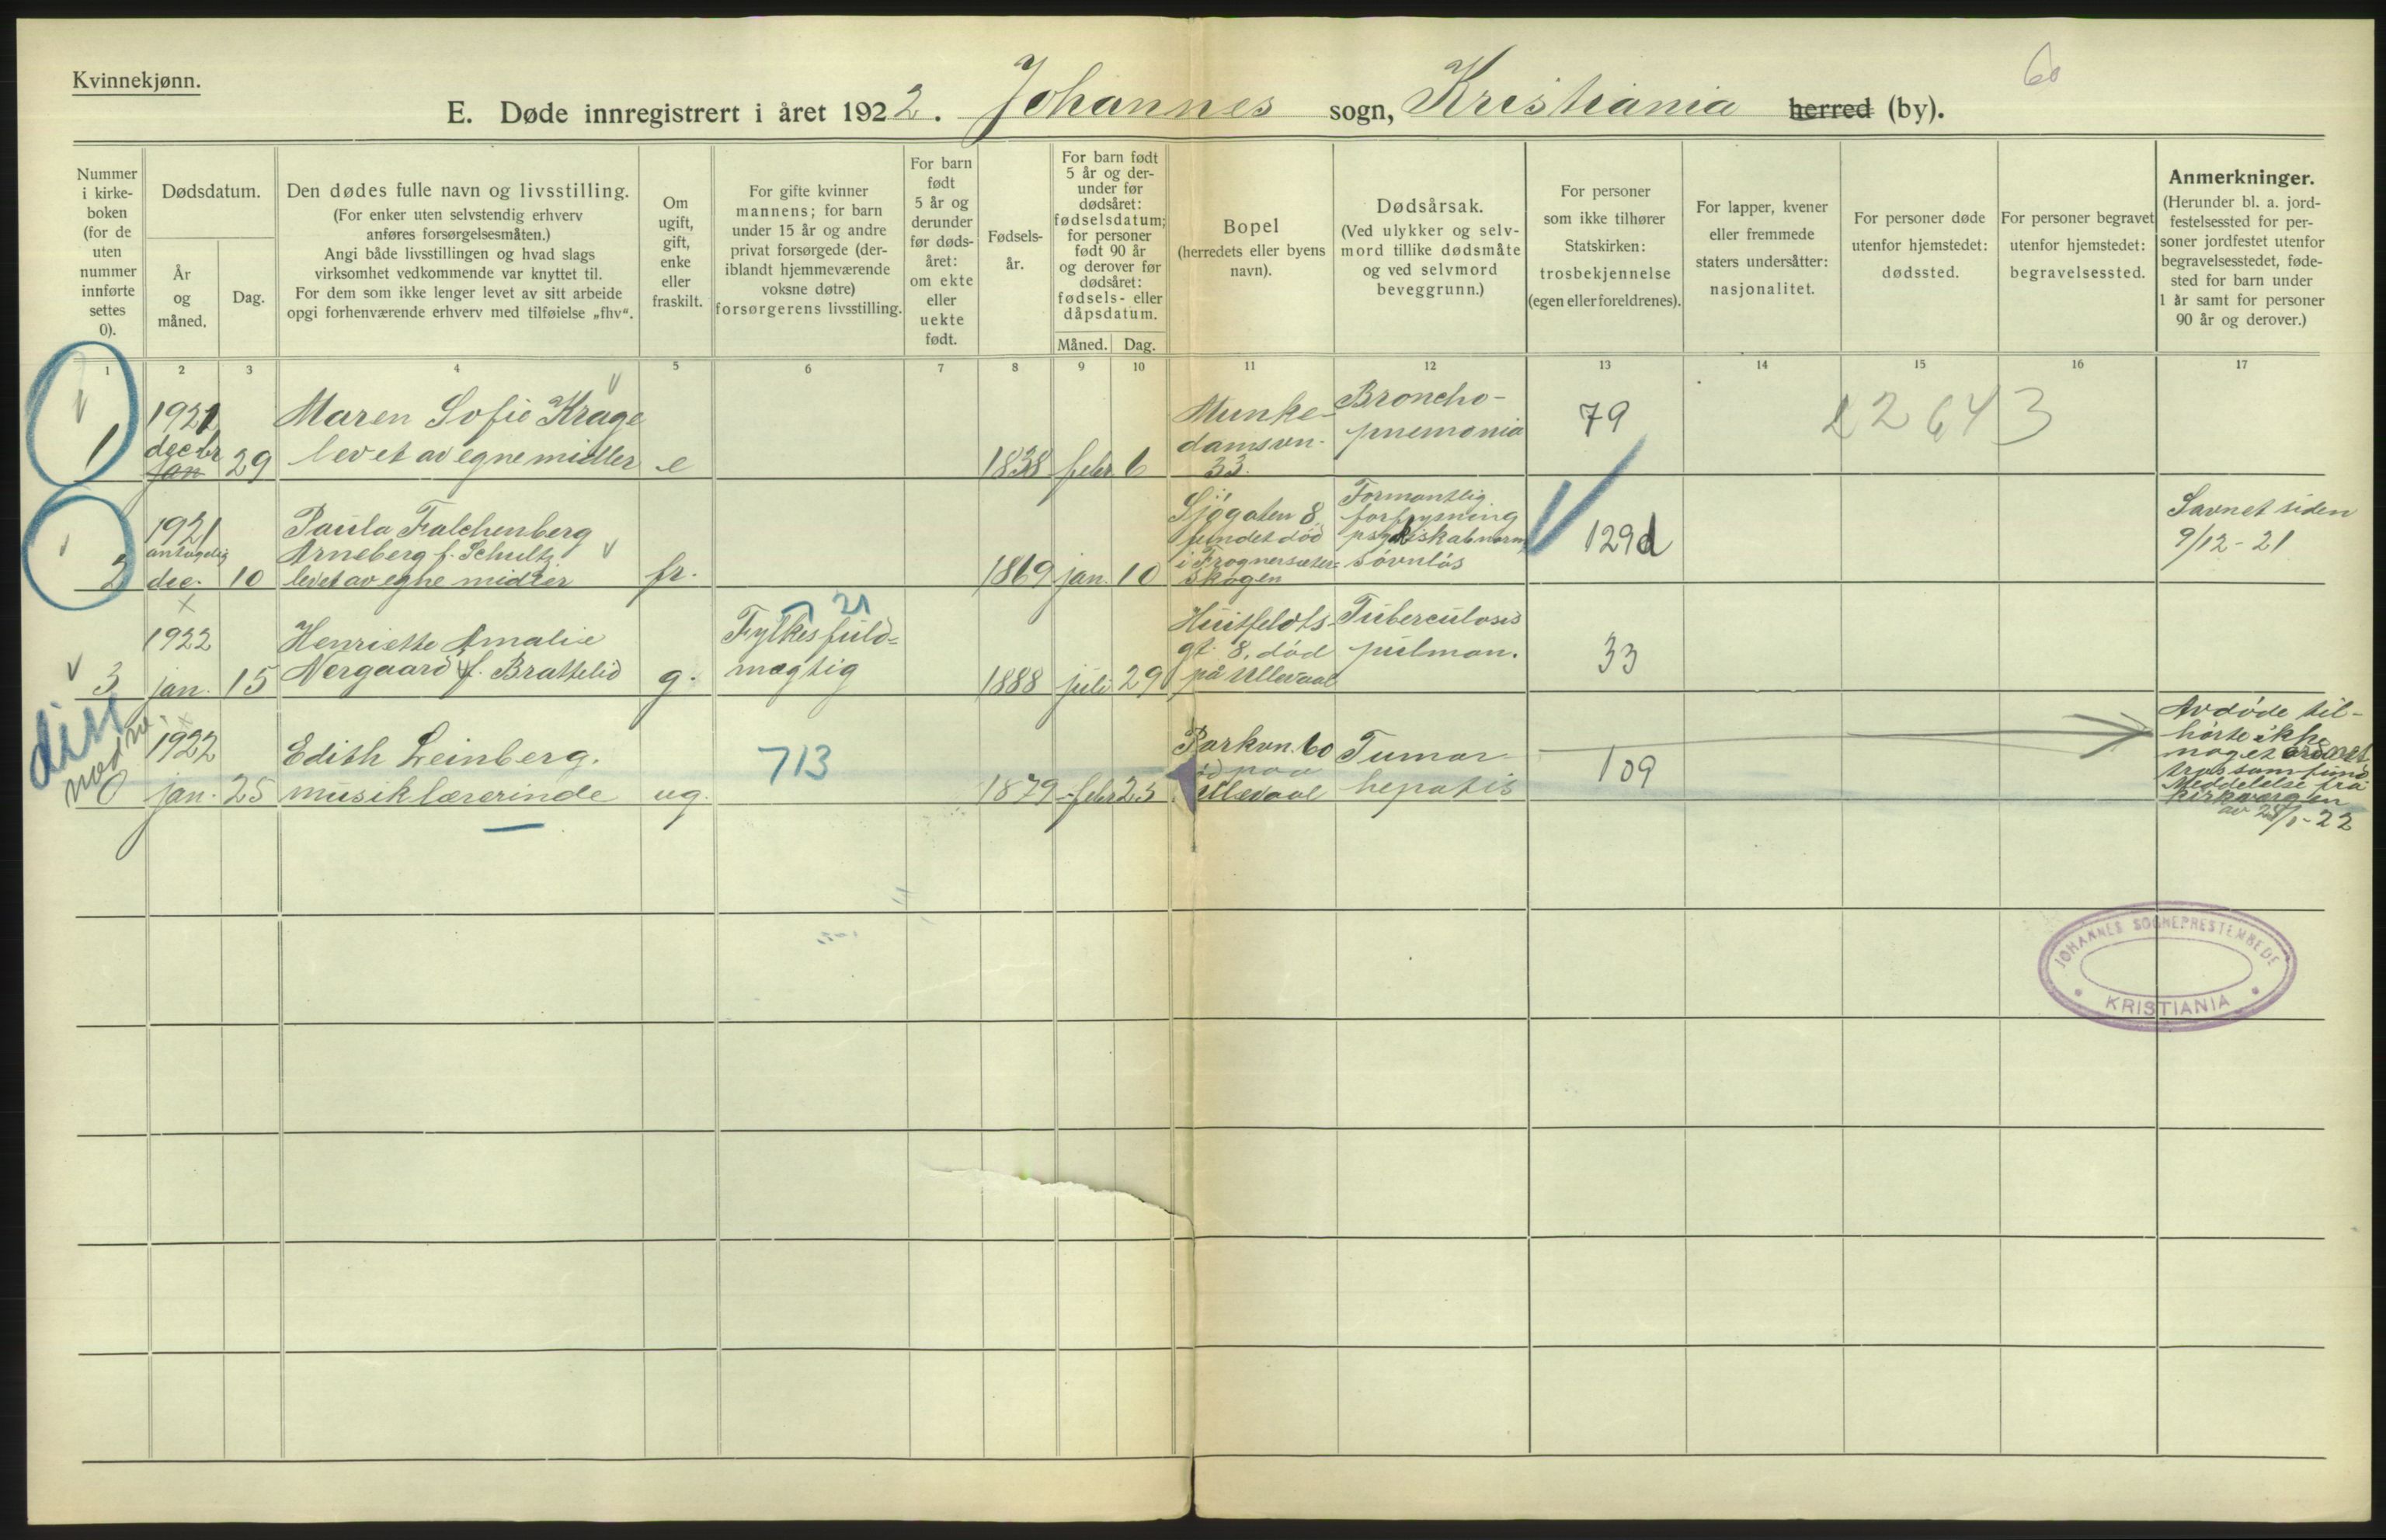 Kvinnekjønn.
60
E. Døde innregistrert i året 1922. Johannes sogn, Kristiania herred (by).
Nummer
i kirke-
boken
(for de
uten
nummer
innførte
settes
0).
Dødsdatum.
År
og
måned.
Dag.
Den dødes fulle navn og livsstilling.
(For enker uten selvstendig erhverv
anføres forsørgelsesmåten.)
Angi både livsstillingen og hvad slags
virksomhet vedkommende var knyttet til.
For dem som ikke lenger levet av sitt arbeide
opgi forhenværende erhverv med tilføielse „fhv“.
Om
ugift,
gift,
enke
eller
fraskilt.
For gifte kvinner
mannens; for barn
under 15 år og andre
privat forsørgede (der-
iblandt hjemmeværende
voksne døtre)
forsørgerens livsstilling.
For barn
født
5 år og
derunder
før døds-
året:
om ekte
eller
uekte
født.
Fødsels-
år.
For barn født
5 år og der-
under før
dødsåret:
fødselsdatum;
for personer
født 90 år
og derover før
dødsåret:
fødsels- eller
dåpsdatum.
Måned. Dag.
Bopel
(herredets eller byens
navn).
Dødsårsak.
(Ved ulykker og selv-
mord tillike dødsmåte
og ved selvmord
beveggrunn.)
For personer
som ikke tilhører
Statskirken:
trosbekjennelse
(egen eller foreldrenes).
For lapper, kvener
eller fremmede
staters undersåtter:
nasjonalitet.
For personer døde
utenfor hjemstedet:
dødssted.
For personer begravet
utenfor hjemstedet:
begravelsessted.
Anmerkninger.
(Herunder bl. a. jord-
festelsessted for per-
soner jordfestet utenfor
begravelsesstedet, føde-
sted for barn under
1 år samt for personer
90 år og derover.)
1 2 3 4 5 6 7 8 9 10 11 12 13 14 15 16 17
1
1921
decbr
jan
29
Maren Sofie Krage
levet av egne midler
e
1838 febr 6
Munke-
damsvn.
33.
Broncho-
pnemonia
79
22643
2
1921
antagelig
dec. 10
Paula Falchenberg
Arneberg f. Schultz
levet av egne midler
fr.
1869 jan. 10
Sjøgaten 8
fundet død
i Frognersæter-
skogen
Formentlig
forfrysning
psykisk abnorm
søvnløs
129d
Savnet siden
9/12-21
3
1922
jan. 15
Henriette Amalie
Nergaard f. Brattelid
g.
21
Fylkesfuld-
mægtig
1888 juli 29
Huitfeldts-
gt. 8, død
på Ullevaal
Tuberculosis
pulmon.
33
diss
0
1922
jan. 25
Edith Leinberg.
musiklærerinde
ug.
713
1879 febr 23
Parkvn. 60
Ullevaal
Tumor
hepatis
109
Avdøde til-
hørte ikke
noget ordnet
trossamfund
Meddelelse fra
kirkevergen
av 28/1-22
JOHANNES SOGNEPRESTEMBEDE
KRISTIANIA